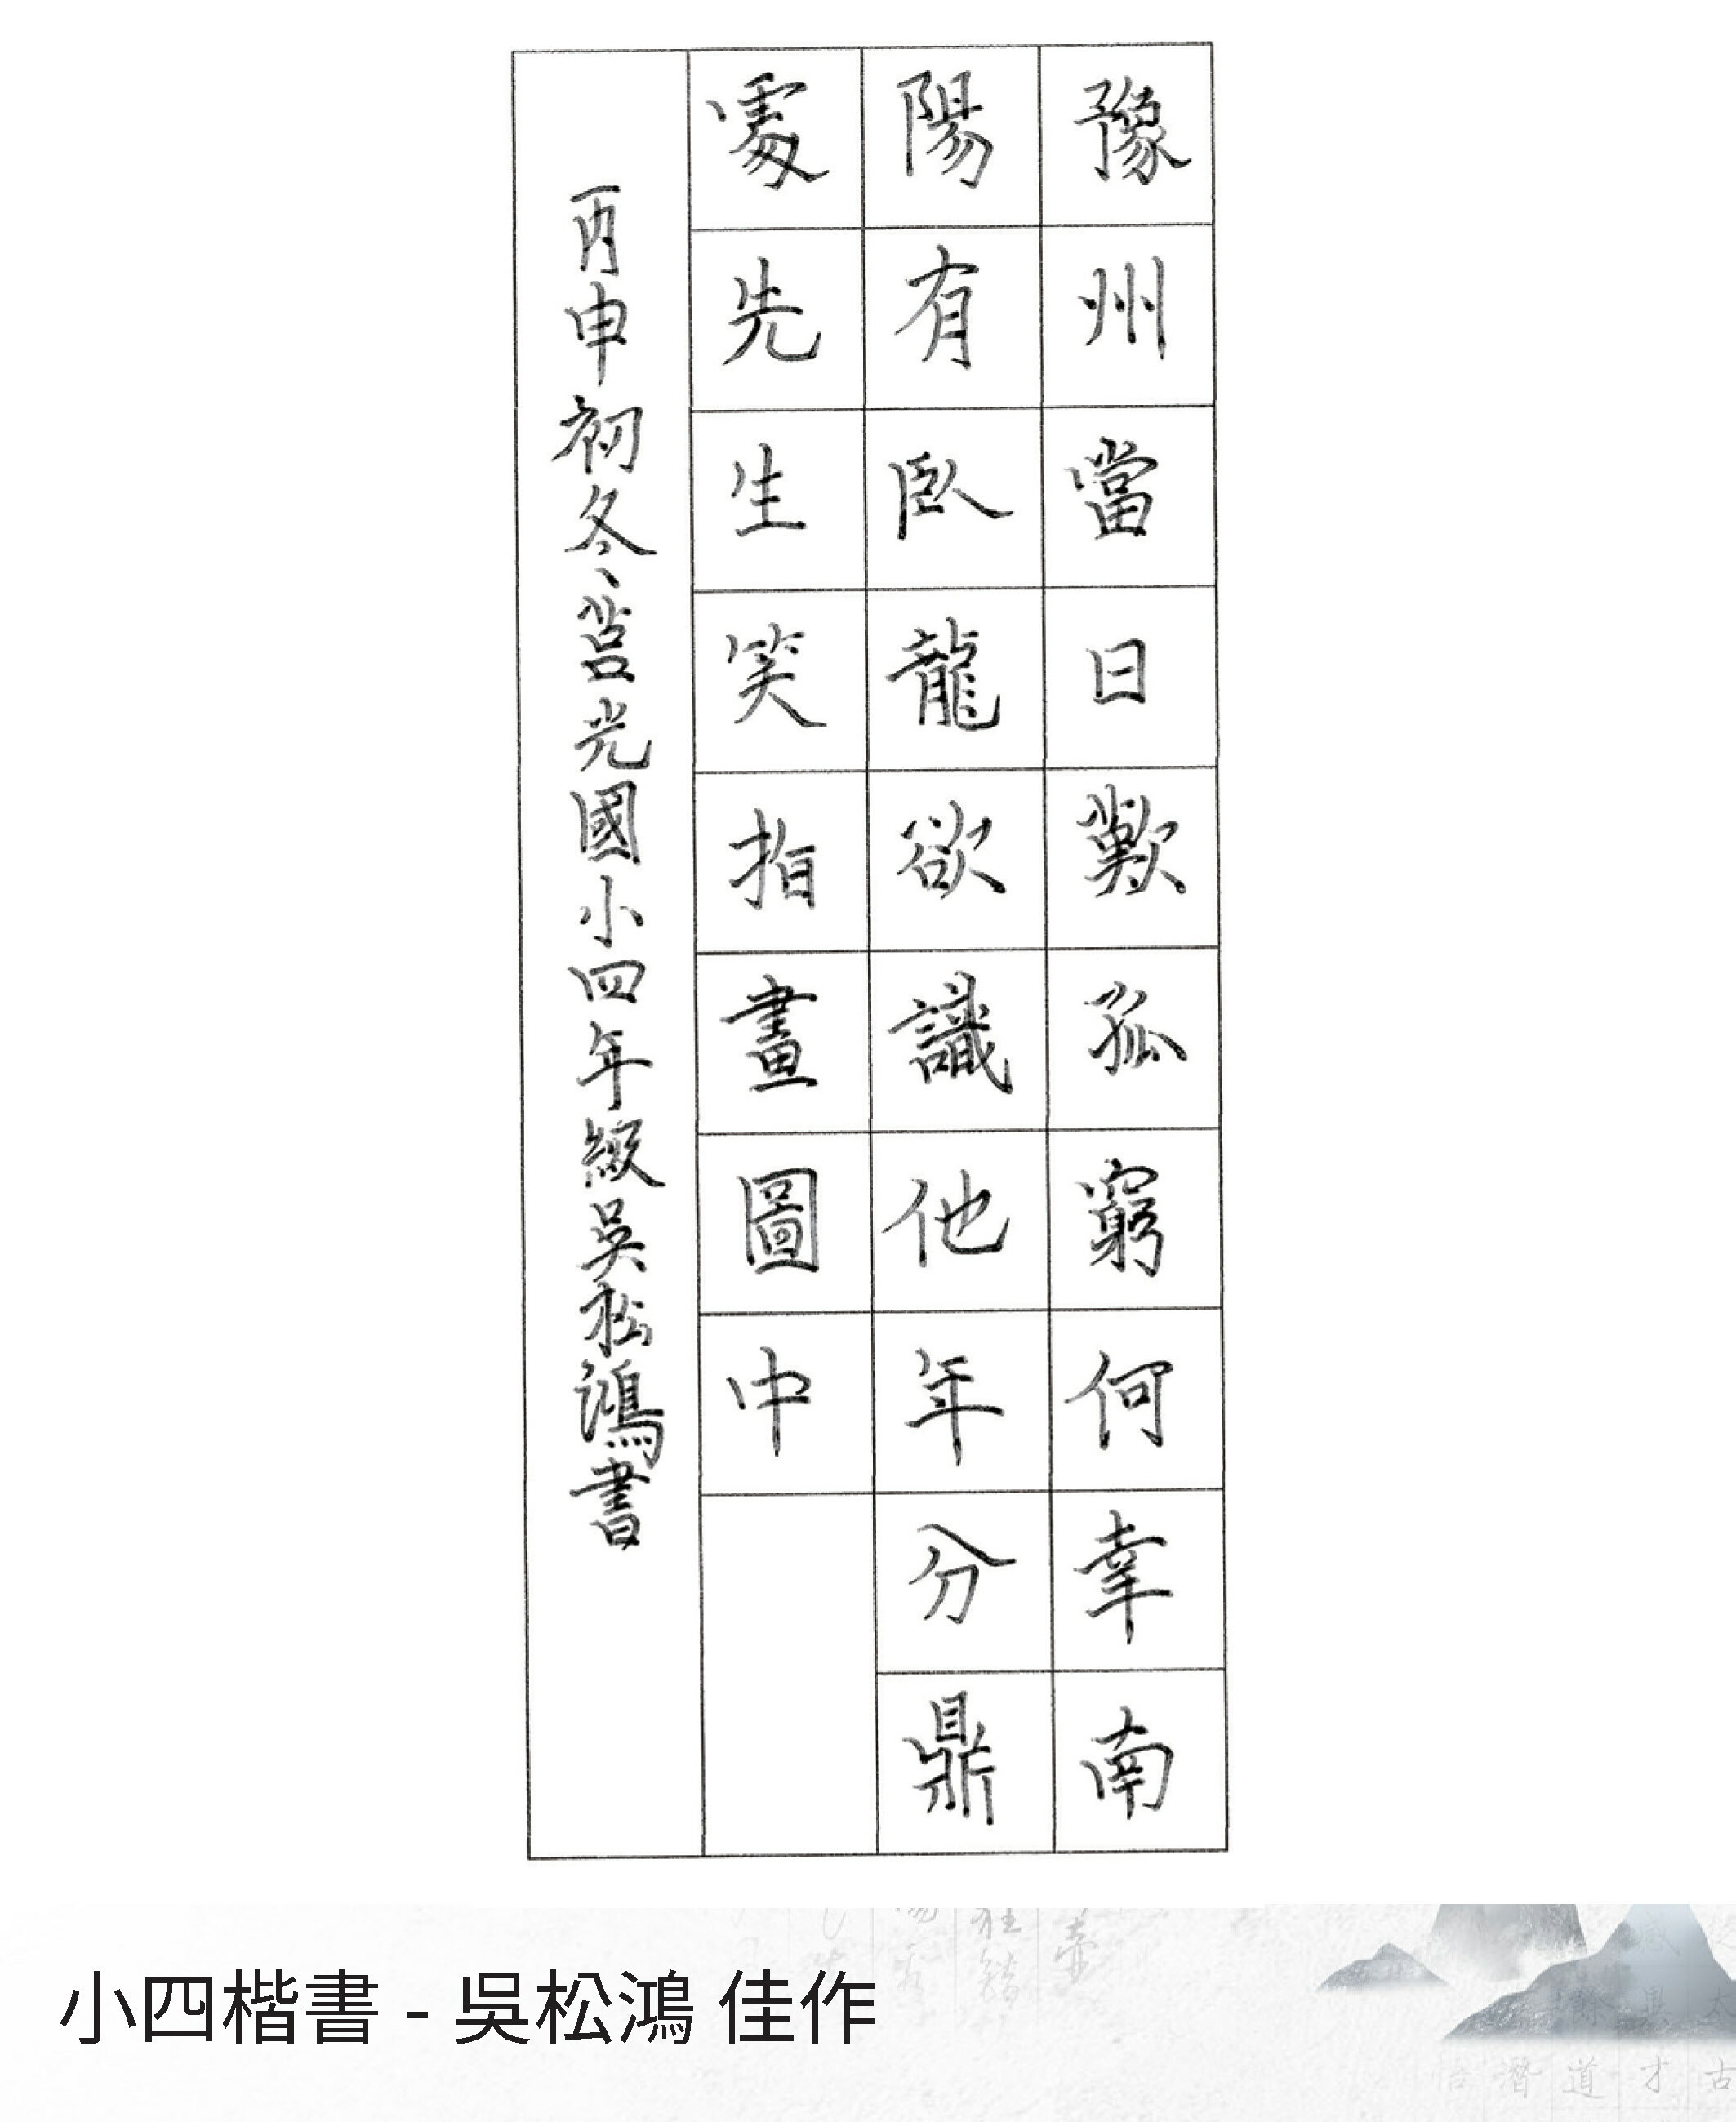 豫州當日歎孤窮何幸南
陽有臥龍欲識他年分鼎
處先生笑指畫圖中
丙申初冬莒光國小四年級吳松鴻書
小四楷書 - 吳松鴻 佳作